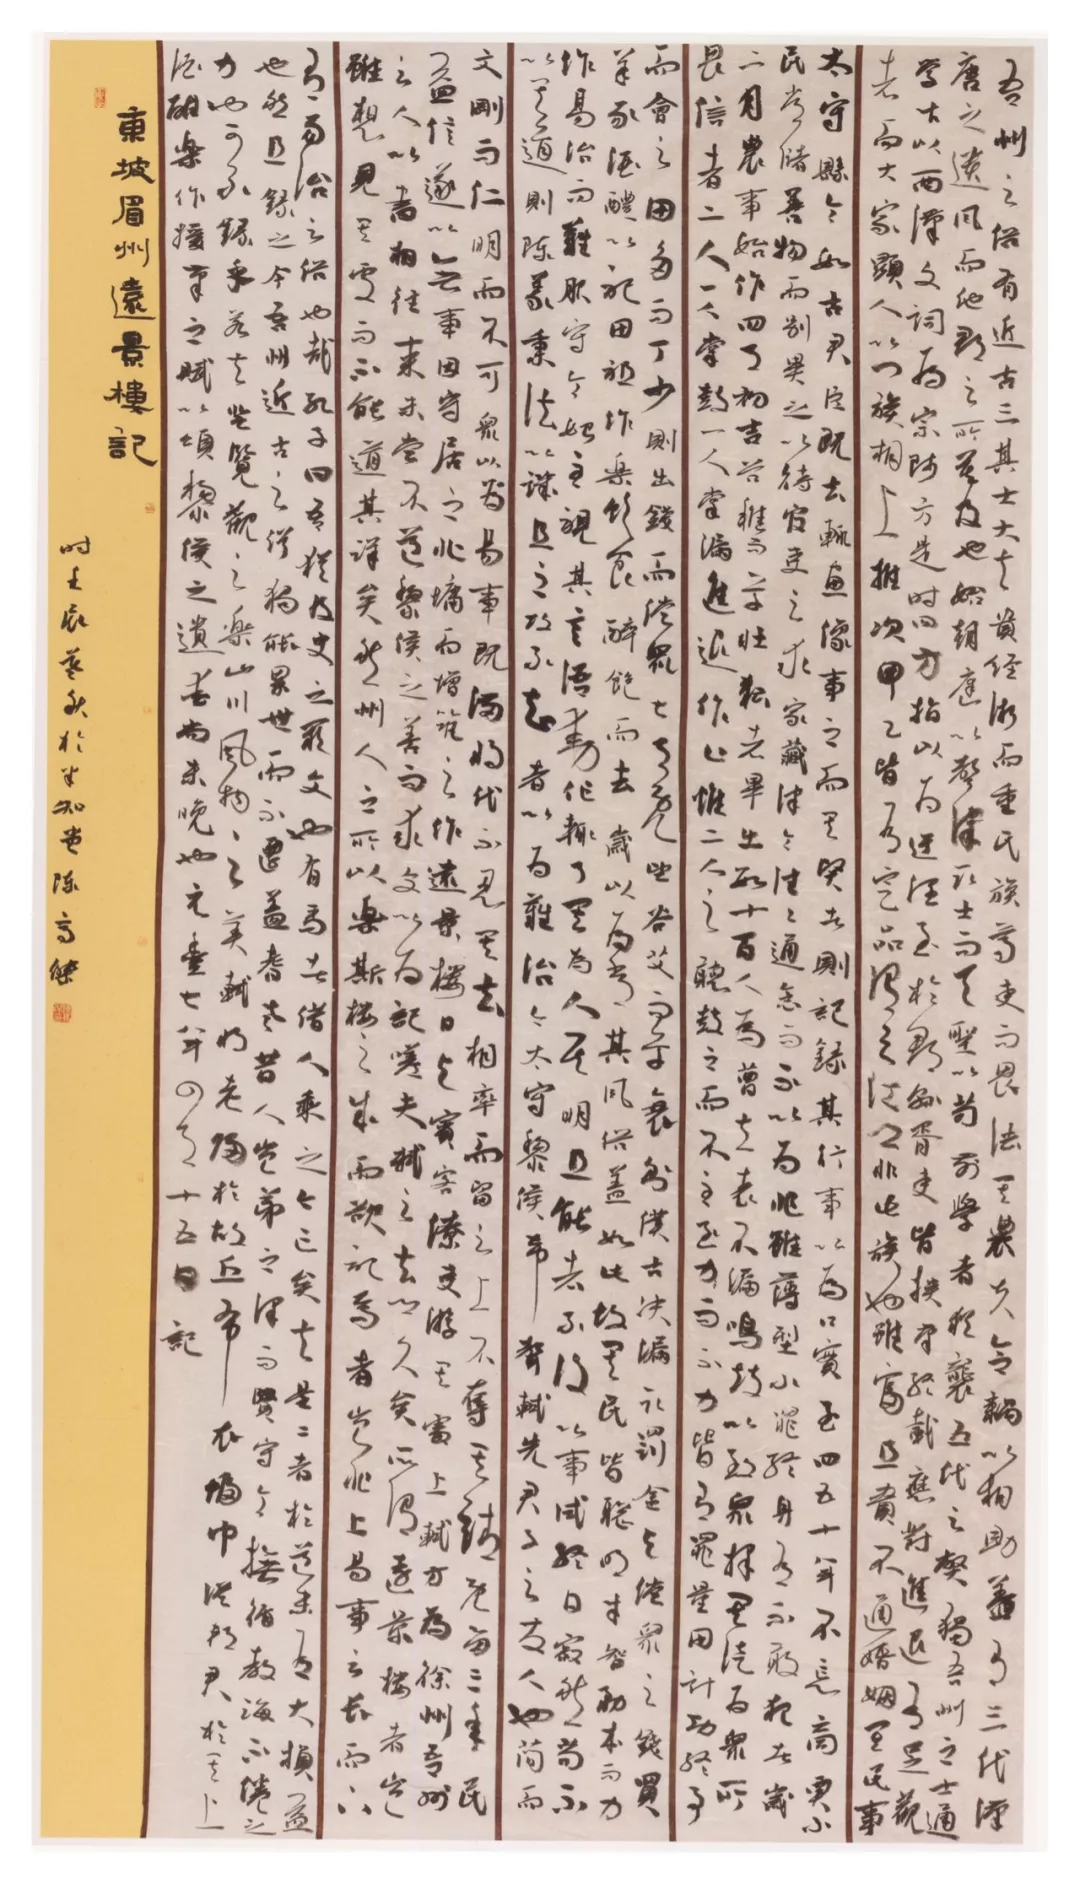 東坡眉州遠景樓記
吾州之俗有近古三其士大夫貴經術而重氏族尊吏而畏法其農夫合耦以相助蓋有三代漢
唐之遺風而他郡之所莫及也始朝庭以聲律取士而天聖以前學者猶襲五代之弊獨吾州之士通
學古以西漢文詞為宗師方是時四方指以為迂至於郡縣胥吏皆挾經載應對進退有足觀
者而大家顯人以門族相上推次甲乙皆有定品謂之江鄉非此族也雖富且貴不通婚姻其民事
太守縣令如古君臣既去輒畫像事之而其賢者則記錄其行事以為口實至四五十年不忘商賈小
民常儲善物而別異之以待官吏之求家藏律令往往通念而不以為非雖薄型小罪終身有不敢犯者歲
二月農事始作四月初吉谷稚而草壯耘者畢出數十百人為曹立表下漏鳴鼓以致眾擇其徒為眾所
畏信者二人一人掌鼓一人掌漏進退作止惟二人之聽鼓之而不至至力而不力皆有罪量田計功終事
而會之田多而丁少則出錢而償眾七月既望谷艾而草衰則仆鼓決漏取罰金與償眾之錢買
羊豕酒醴以祀田祖作樂飲食醉飽而去歲以為常其風俗蓋如此故其民皆聰明才智務本而力
作易治而難服守令始至視其言語動作輒了其為人其明且能者不復以事試終日寂然苟不
以其道則陳義秉法以譏且之故不知者以為難治今太守黎侯希聲軾先君子之友人也簡而
文剛而仁明而不可眾以為易事既滿將代不忍其去相率而留之上不奪其請既留三年民
益信遂以無事因守居之北墉而增筑之作遠景樓日與賓客僚吏游其處上軾方為徐州吾州
之人以書相往來未嘗不道黎侯之善而求文以為記嗟夫軾之去鄉久矣所謂遠景樓者豈
雖想見其處而不能道其詳矣然州人之所以樂斯樓之成而欲記焉者豈非上易事之長而下
有易治之俗也哉孔子曰吾猶及史之闕文也有馬者借人乘之今亡矣夫是二者於道未有大損益
也然且錄之今吾州近古之俗獨能累世而不遷蓋耆老昔人豈弟之澤而賢守令撫循教誨不倦之
力也可不錄乎若夫登覽觀之樂山川風物之美軾將老歸於故丘布衣幅巾從邦君於其上
酒酣樂作援筆之賦以頌黎侯之遺愛尚未晚也元豐七年四月十五日記
時壬辰暮秋於半知堂陳高傑